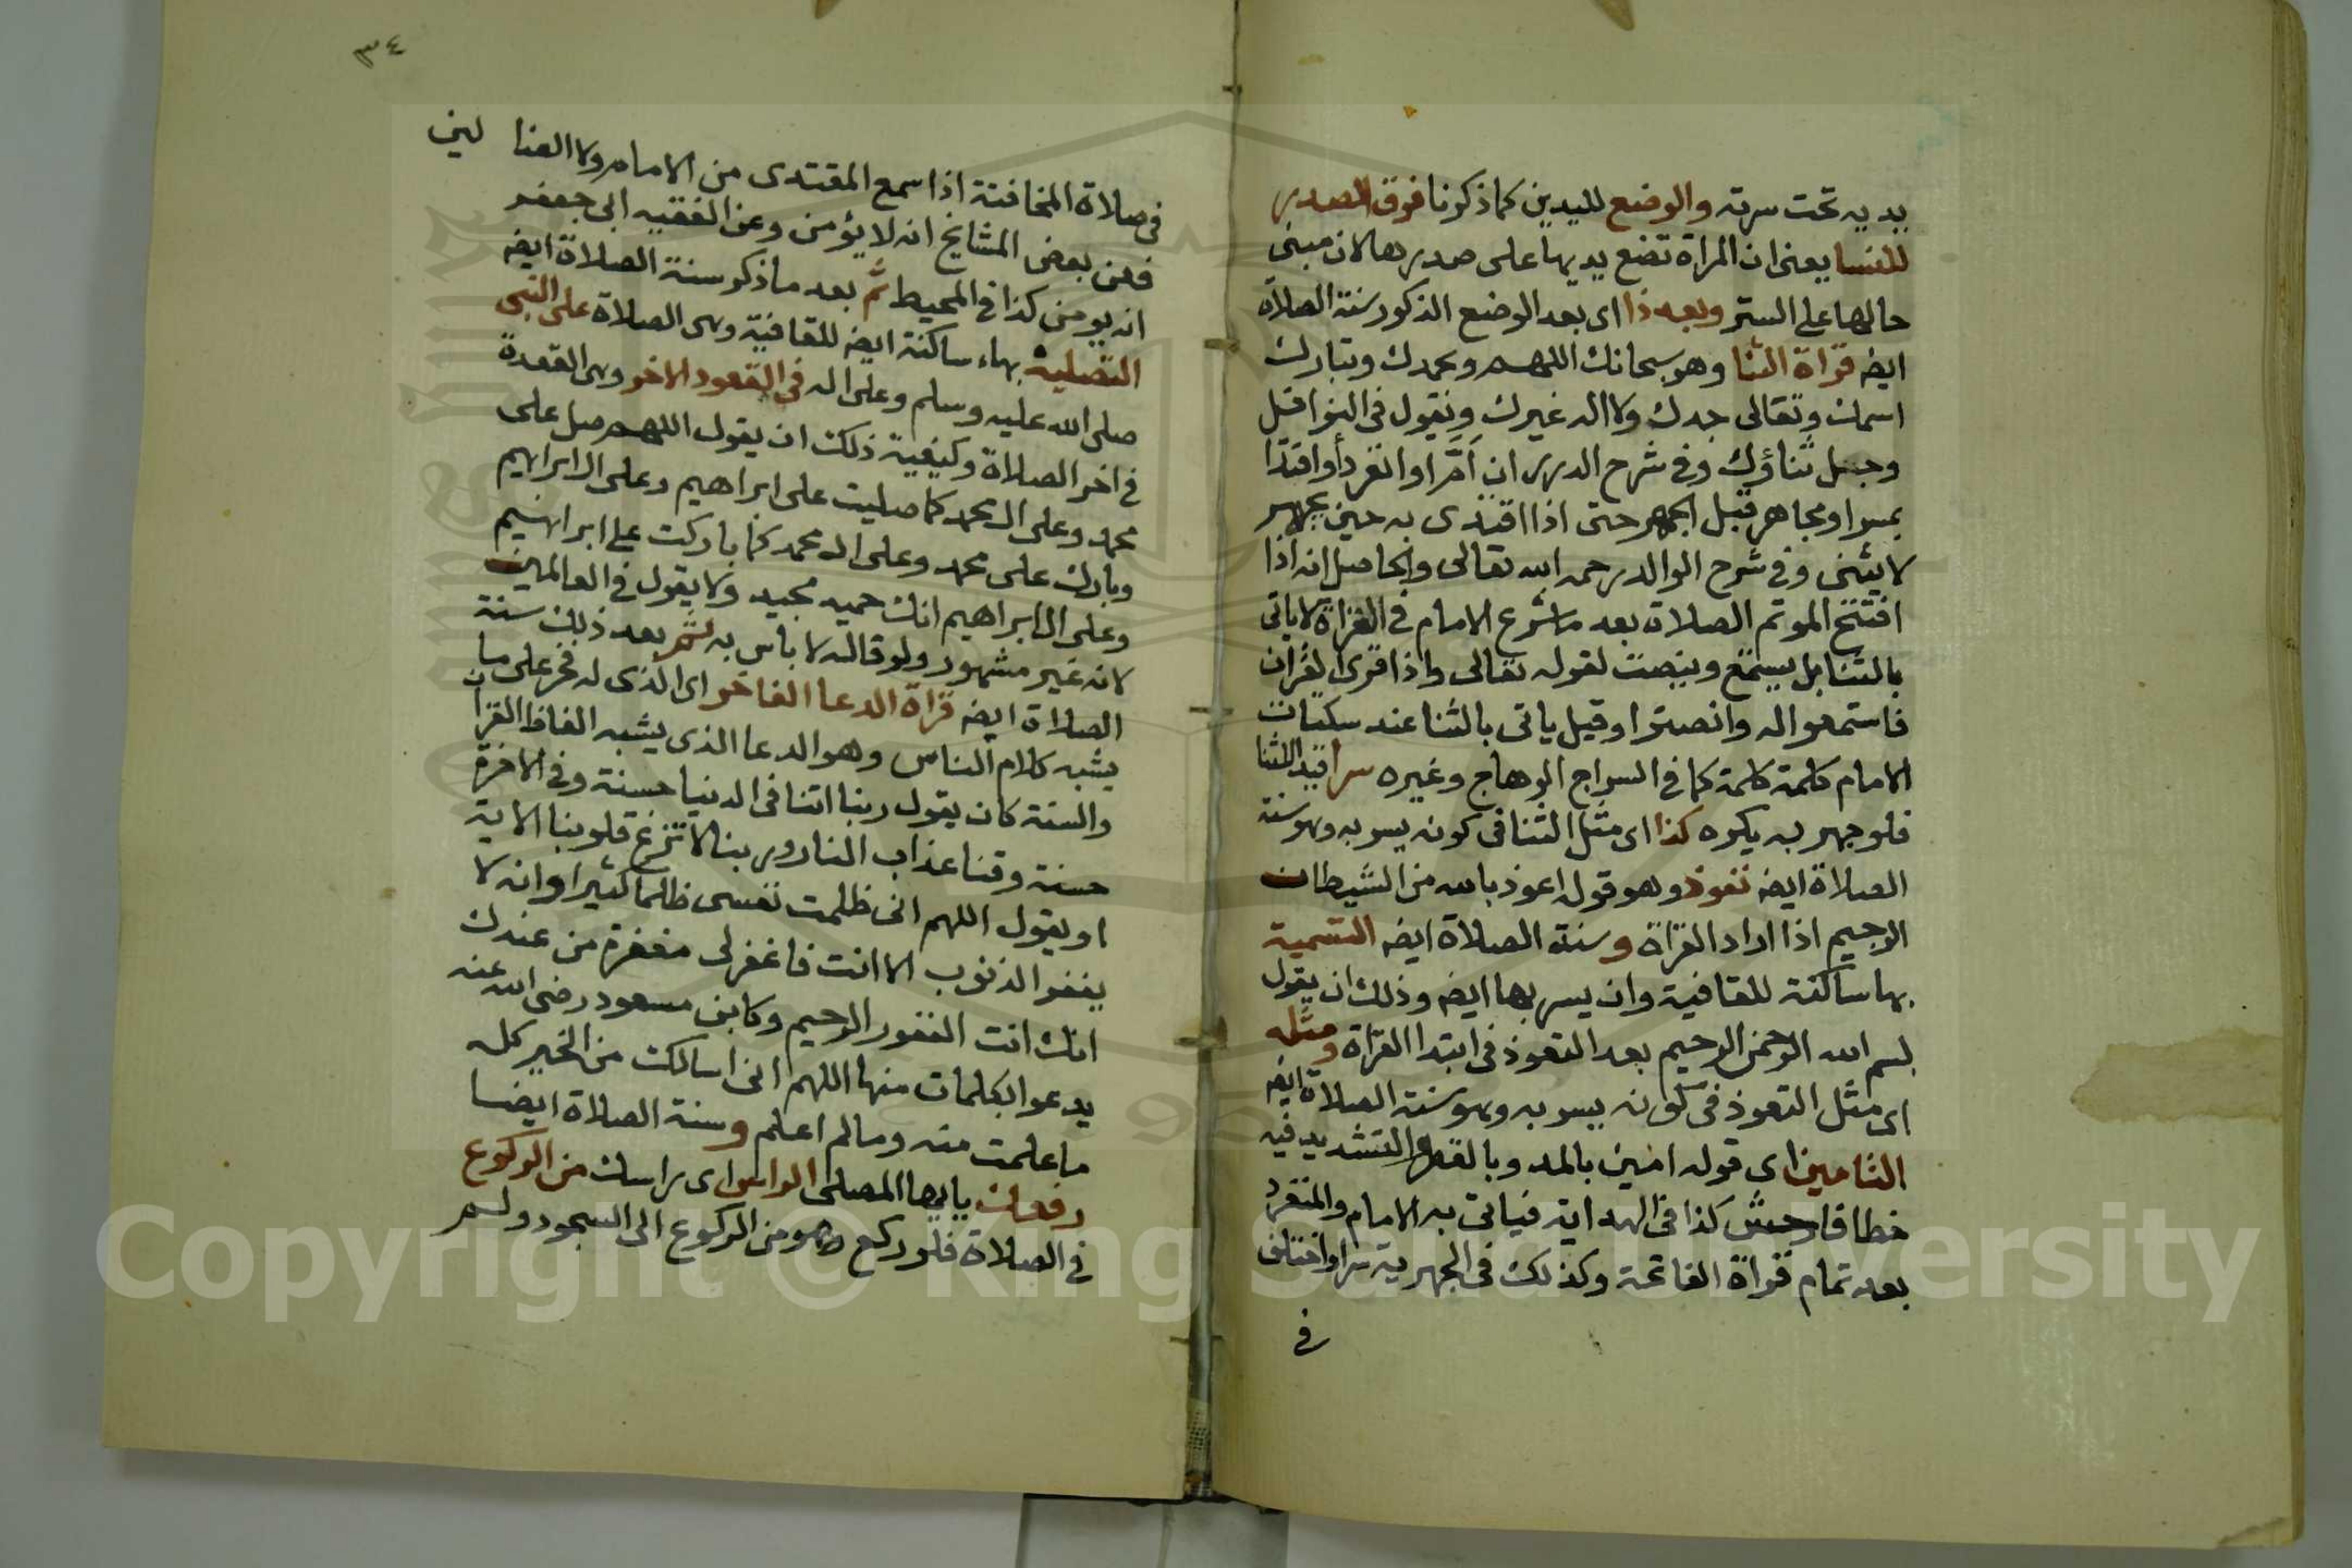 يديه تحت سرته والوضع لليدين كما ذكرنا فوق الصدر
للنسا يعني ان المراة تضع يديها على صدرها لان مبنى
حالها على الستر وبعد ذا اي بعد الوضع المذكور سنة الصلاة
ايضه قراة الثنا وهو سبحانك اللهم وبحمدك وتبارك
اسمك وتعالى جدك ولا اله غيرك ونقول في النوافل
وجل ثناؤك وفي شرح الدرر ان اَمَّ او انفرد أو اقتدا
بمسر او مجاهر قبل الجهر حتى اذا اقتدى به حين يجهر
لا يثني وفي شرح الوالد رحمه الله تعالى والحاصل انه اذا
افتتح الموتم الصلاة بعد ما شرع الامام في القراة لا ياتى
بالثنا بل يستمع وينصت لقوله تعالى واذا قرى القران
فاستمعوا له وانصتوا وقيل ياتى بالثنا عند سكتات
الامام كلمة كلمة كما في السراج الوهاج وغيره سرا قيد للثنا
فلو جهر به يكره كذا اى مثل الثنا في كونه يسر به وهو سنة
الصلاة ايضه تعوذ وهو قول اعوذ بالله من الشيطان
الرجيم اذا اراد القراة وسنة الصلاة ايضه التسمية
بها ساكنة للقافية وان يسر بها ايضه وذلك ان يقول
بسم الله الرحمن الرحيم بعد التعوذ في ابتدا القراة ومثله
اى مثل التعوذ في كونه يسر به وهو سنة الصلاة ايضه
التامين اى قوله امين بالمد وبالقصر والتشديد فيه
خطا فاحش كذا في الهداية فياتى به الامام والمنفرد
بعد تمام قراة الفاتحة وكذلك في الجهرية سرا واختلف
في
٣٤
في صلاة المخافتة اذا سمع المقتدى من الامام ولا الضا لين
فعن بعض المشايخ انه لا يؤمن وعن الفقيه ابى جعفر
انه يومن كذا في المحيط ثم بعد ما ذكر سنة الصلاة ايضه
التصليه بهاء ساكنة ايضه للقافية وهى الصلاة على النبى
صلى الله عليه وسلم وعلى اله في القعود الاخر وهى القعدة
في اخر الصلاة وكيفية ذلك ان يقول اللهم صل على
محمد وعلى ال محمد كما صليت على ابراهيم وعلى ال ابراهيم
وبارك على محمد وعلى ال محمد كما باركت على ابراهيم
وعلى ال ابراهيم انك حميد مجيد ولا يقول في العالمين
لانه غير مشهور ولو قاله لا باس به ثم بعد ذلك سنة
الصلاة ايضه قراة الدعا الفاخر اى الذى له فخر على ما
يشبه كلام الناس وهو الدعا الذى يشبه الفاظ القران
والسنة كان يقول ربنا اتنا في الدنيا حسنة وفي الاخرة
حسنة وقنا عذاب النار وربنا لا تزغ قلوبنا الاية
او يقول اللهم انى ظلمت نفسى ظلما كثيرا وانه لا
يغفر الذنوب الا انت فاغفر لى مغفرة من عندك
انك انت الغفور الرحيم وكابن مسعود رضى الله عنه
يدعوا بكلمات منها اللهم انى اسالك من الخير كله
ما علمت منه وما لم اعلم وسنة الصلاة ايضا
رفعك يا ايها المصلى الراس اى راسك من الركوع
في الصلاة فلو ركع وهو من الركوع الى السجود ولم
Copyright © King Saud University